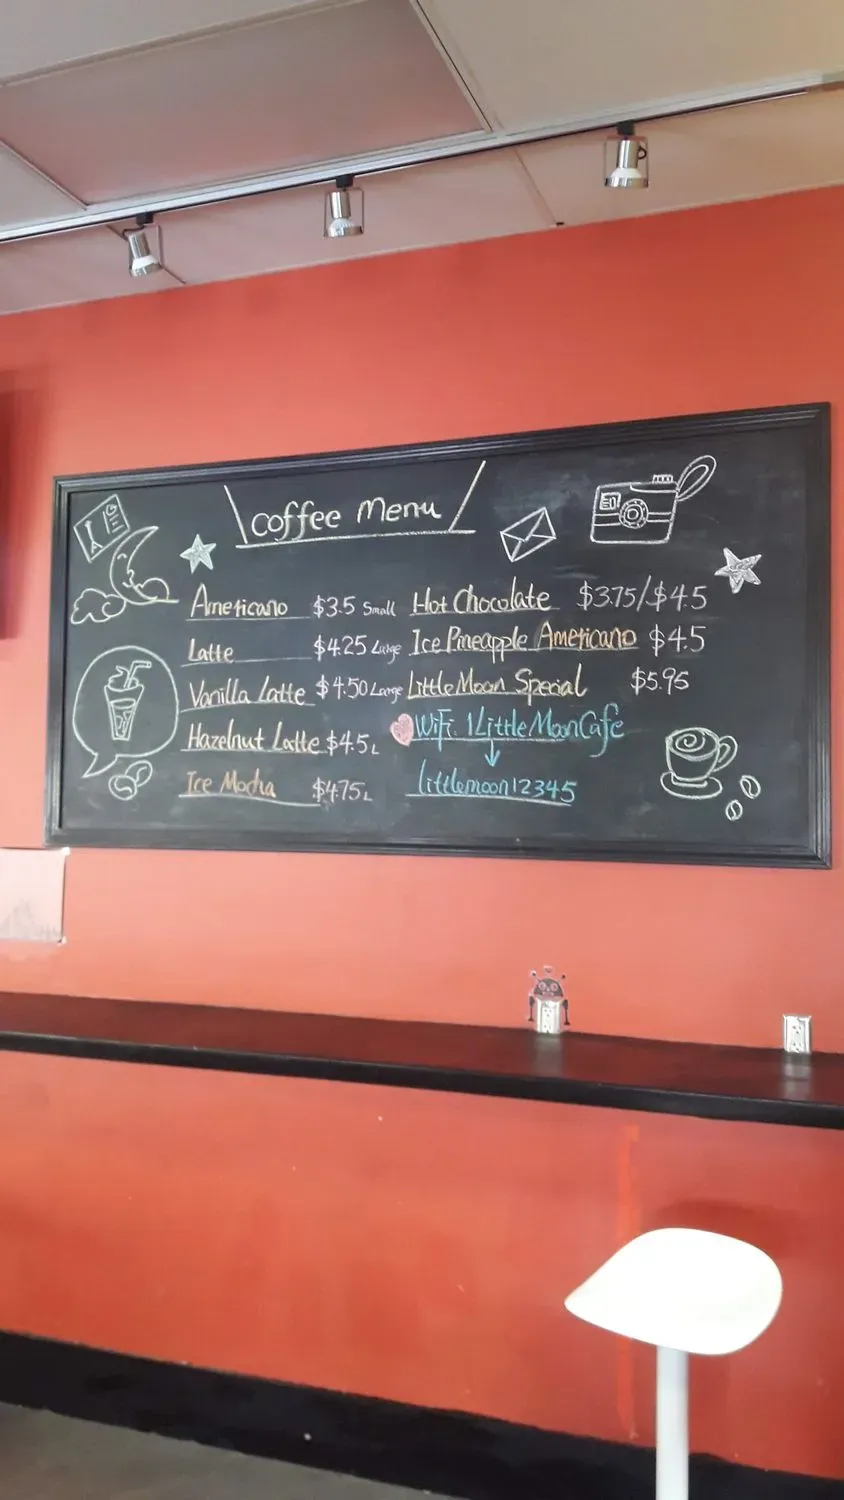 Coffee Menu
Americano $3.5 Small
Latte $4.25 Large
Vanilla Latte $4.50 Large
Hazelnut Latte $4.5 L
Ice Mocha $4.75 L
Hot Chocolate $3.75/$4.5
Ice Pineapple Americano $4.5
Little Moon Special $5.95
WiFi. 1LittleMoonCafe
littlemoon12345